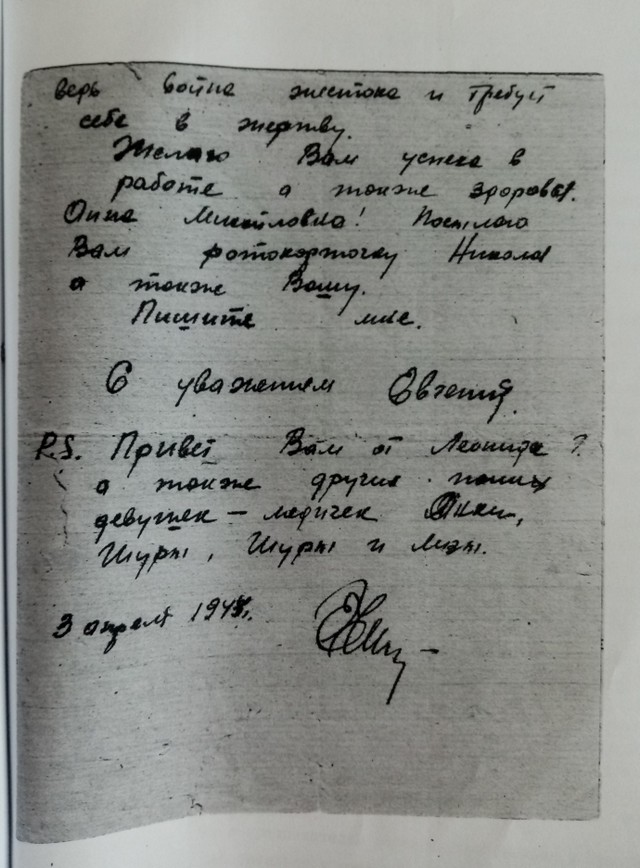 ведь война жестока и требует
себе в жертву.
Желаю Вам успеха в
работе а также здоровья.
Анна Михайловна! Посылаю
Вам фотокарточку Николая
а также Вашу.
Пишите мне.
С уважением Евгений.
P.S. Привет Вам от Леонида
а также других наших
девушек - медичек
Шуры, Шуры и Лизы.
3 апреля